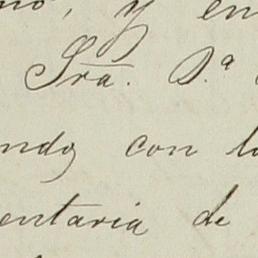 y en
Sra. D.ª
ndo con la
entaria de